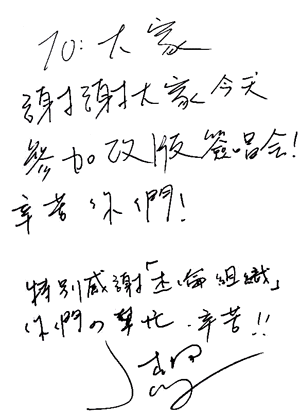 TO:大家
謝謝大家今天
參加改版簽唱会!
辛苦你們!
特別感謝「杰倫組織」
你們の幫忙.辛苦!!